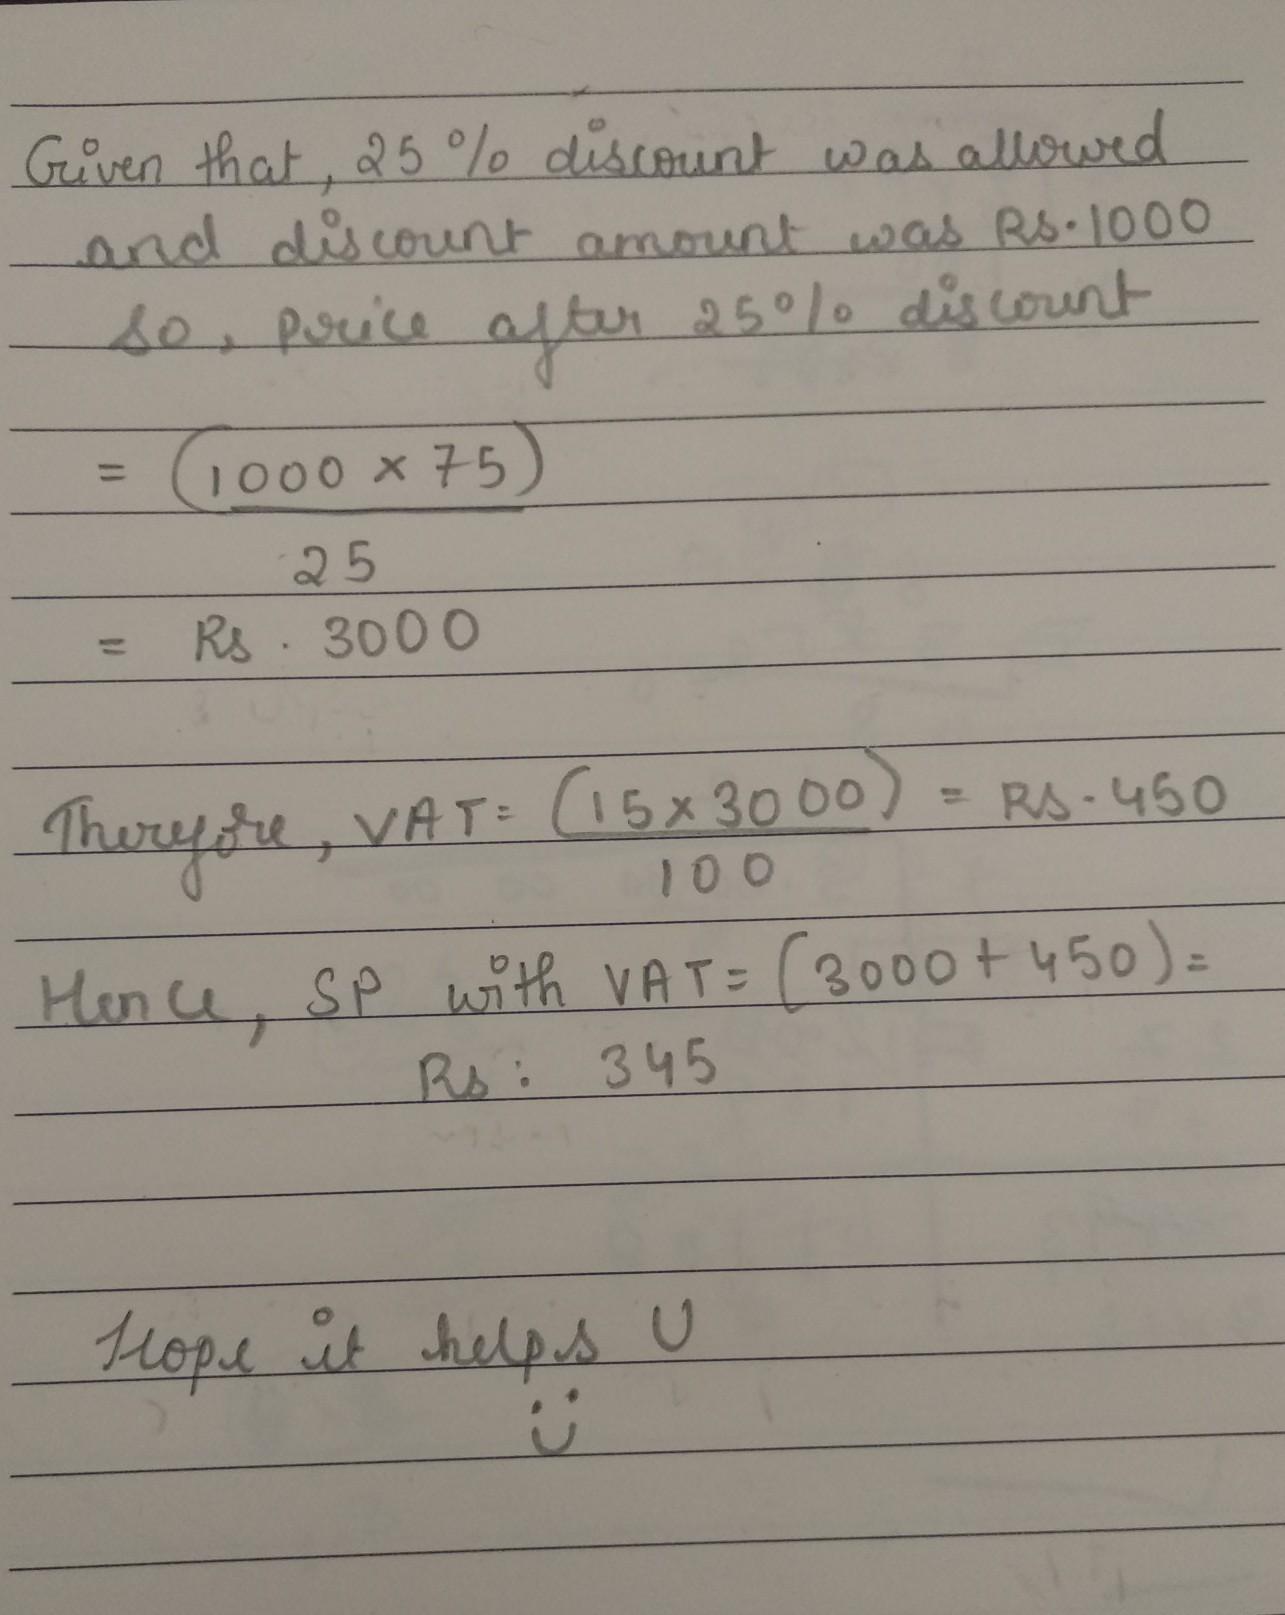 Given that, 25% discount was allowed
and discount amount was Rs.1000
so, price after 25% discount
= (1000 × 75)
25
= Rs. 3000
Therefore, VAT = (15×3000) = Rs.450
100
Hence, SP with VAT = (3000+450) =
Rs: 345
Hope it helps U